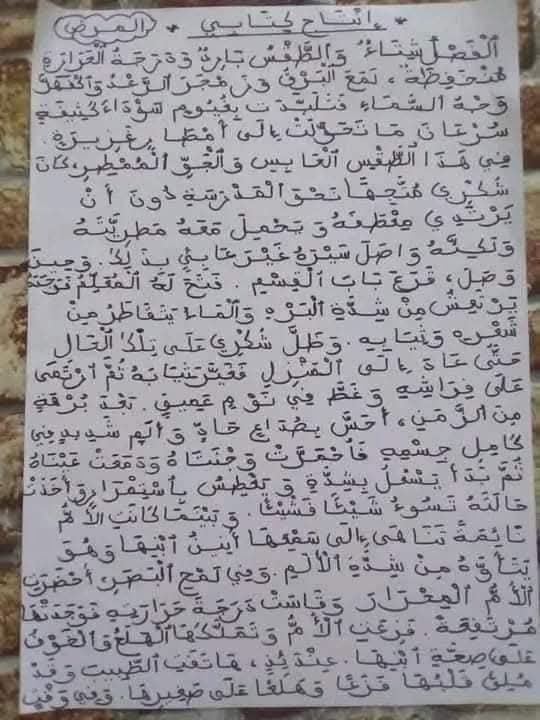 * إنتاج كتابي * المرض
الْفَصْلُ شِتَاءٌ وَالطَّقْسُ بَارِدٌ وَدَرَجَةُ الْحَرَارَةِ
مُنْخَفِظَةٌ، لَمَعَ الْبَرْقُ وَزَمْجَرَ الرَّعْدُ وَاكْفَهَرَّ
وَجْهُ السَّمَاءِ فَتَلَبَّدَتْ بِغُيُومٍ سَوْدَاءَ كَثِيفَةٍ
سُرْعَانَ مَا تَحَوَّلَتْ إِلَى أَمْطَارٍ غَزِيرَةٍ.
فِي هَذَا الطَّقْسِ الْعَابِسِ وَالْجَوِّ الْمُمْطِرِ، كَانَ
شُكْرِي مُتَّجِهًا نَحْوَ الْمَدْرَسَةِ دُونَ أَنْ
يَرْتَدِي مِعْطَفَهُ وَيَحْمِلَ مَعَهُ مَطَرِيَّتَهُ
وَلَكِنَّهُ وَاصَلَ سَيْرَهُ غَيْرَ عَابِئٍ بِذَلِكَ. وَحِينَ
وَصَلَ، قَرَعَ بَابَ الْقِسْمِ. فَتَحَ لَهُ الْمُعَلِّمُ فَوَجَدَهُ
يَرْتَعِشُ مِنْ شِدَّةِ الْبَرْدِ وَالْمَاءُ يَتَقَاطَرُ مِنْ
شَعْرِهِ وَثِيَابِهِ. وَظَلَّ شُكْرِي عَلَى تِلْكَ الْحَالِ
حَتَّى عَادَ إِلَى الْمَنْزِلِ فَغَيَّرَ ثِيَابَهُ ثُمَّ ارْتَمَى
عَلَى فِرَاشِهِ وَغَطَّ فِي نَوْمٍ عَمِيقٍ. بَعْدَ بُرْهَةٍ
مِنَ الزَّمَنِ، أَحَسَّ بِصُدَاعٍ حَادٍّ وَأَلَمٍ شَدِيدٍ فِي
كَامِلِ جِسْمِهِ فَاحْمَرَّتْ وَجْنَتَاهُ وَدَمَعَتْ عَيْنَاهُ
ثُمَّ بَدَأَ يَسْعُلُ بِشِدَّةٍ وَيَعْطِسُ بِاسْتِمْرَارٍ وَأَخَذَتْ
حَالَتُهُ تَسُوءُ شَيْئًا فَشَيْئًا. وَبَيْنَمَا كَانَتِ الأُمُّ
نَائِمَةً تَنَاهَى إِلَى سَمْعِهَا أَنِينُ ابْنِهَا وَهُوَ
يَتَأَوَّهُ مِنْ شِدَّةِ الأَلَمِ. وَفِي لَمْحِ الْبَصَرِ أَحْضَرَتِ
الأُمُّ الْمِحْرَارَ وَقَاسَتْ دَرَجَةَ حَرَارَتِهِ فَوَجَدَتْهَا
مُرْتَفِعَةً. فَزِعَتِ الأُمُّ وَتَمَلَّكَهَا الْهَلَعُ وَالْخَوْفُ
عَلَى صِحَّةِ ابْنِهَا. عِنْدَئِذٍ، هَاتَفَتِ الطَّبِيبَ وَقَدْ
مُلِئَ قَلْبُهَا فَزَعًا وَهَلَعًا عَلَى صَغِيرِهَا. وَفِي وَقْتٍ